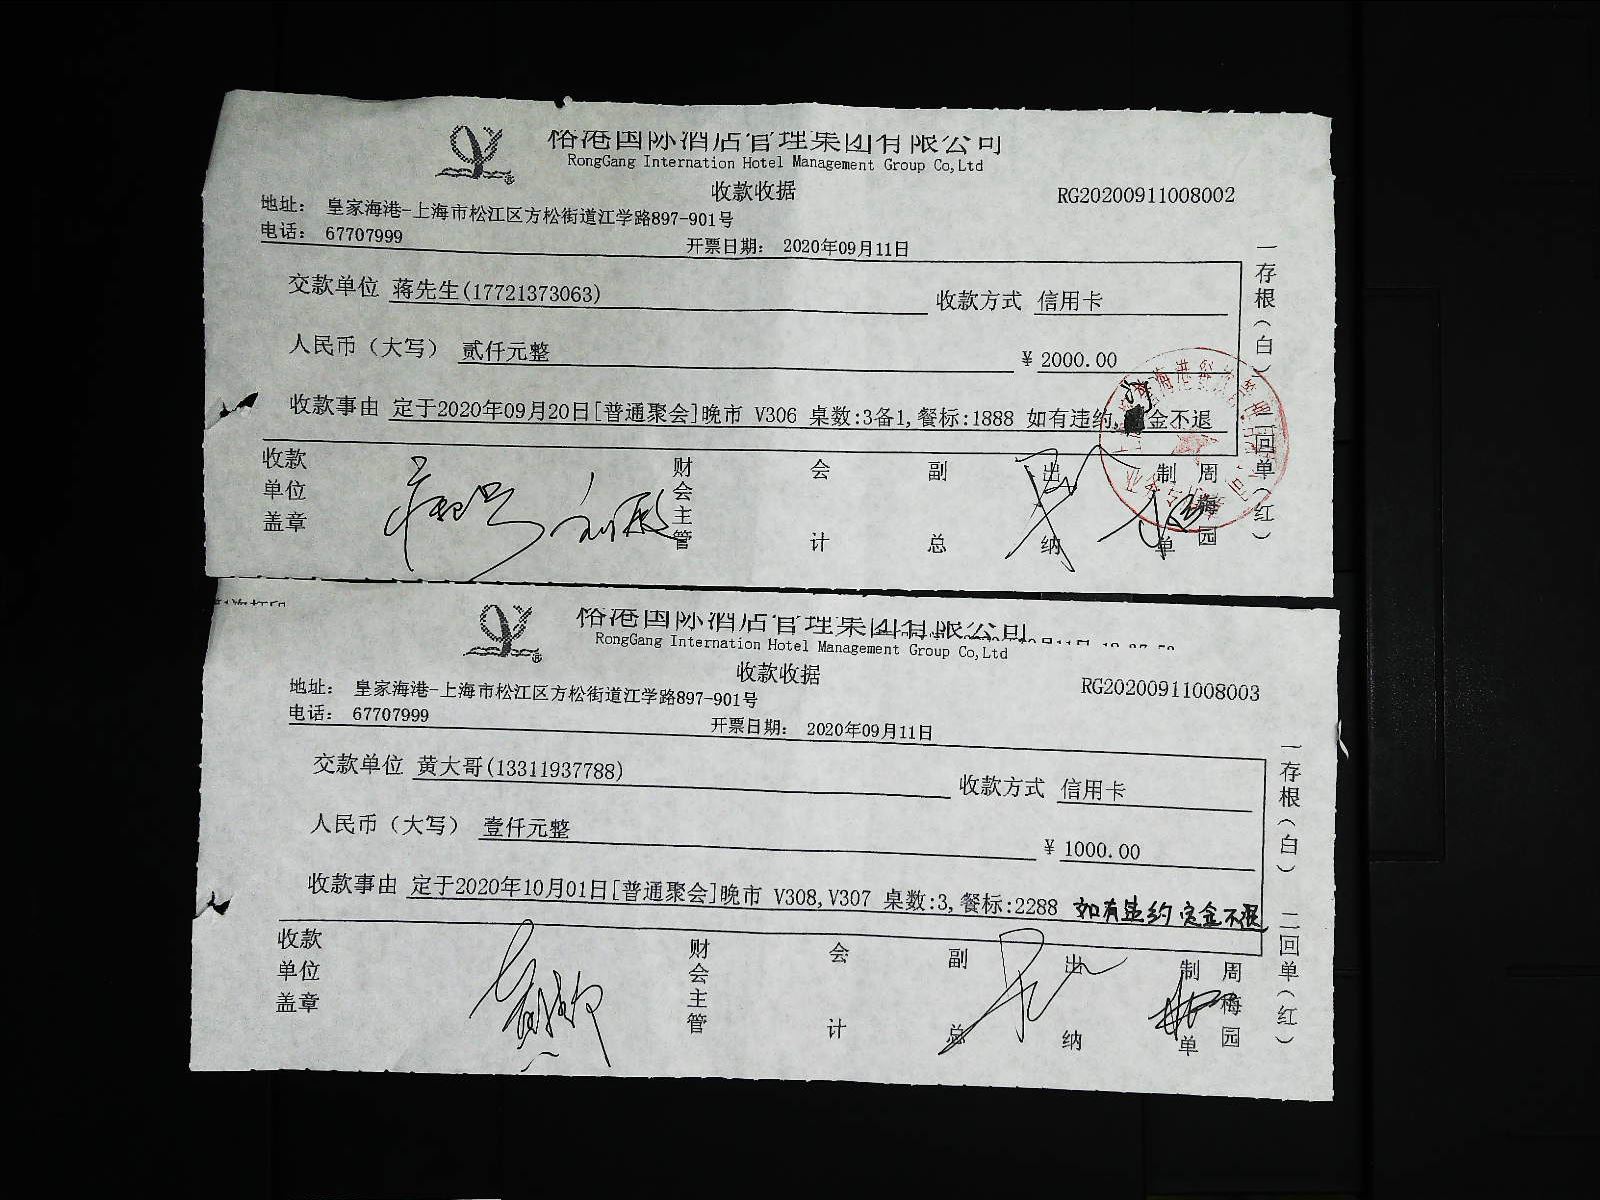 榕港国际酒店管理集团有限公司
RongGang Internation Hotel Management Group Co,Ltd
收款收据
RG20200911008002
地址： 皇家海港-上海市松江区方松街道江学路897-901号
电话： 67707999
开票日期： 2020年09月11日
交款单位 蒋先生(17721373063)
收款方式 信用卡
人民币（大写） 贰仟元整
¥ 2000.00
收款事由 定于2020年09月20日[普通聚会]晚市 V306 桌数:3备1,餐标:1888 如有违约,定金不退
收款单位盖章
财会主管
会计
副总
出纳
制单
周梅园
一存根（白） 二回单（红）
榕港国际酒店管理集团有限公司
RongGang Internation Hotel Management Group Co,Ltd
收款收据
RG20200911008003
地址： 皇家海港-上海市松江区方松街道江学路897-901号
电话： 67707999
开票日期： 2020年09月11日
交款单位 黄大哥(13311937788)
收款方式 信用卡
人民币（大写） 壹仟元整
¥ 1000.00
收款事由 定于2020年10月01日[普通聚会]晚市 V308,V307 桌数:3,餐标:2288 如有违约 定金不退
收款单位盖章
财会主管
会计
副总
出纳
制单
周梅园
一存根（白） 二回单（红）